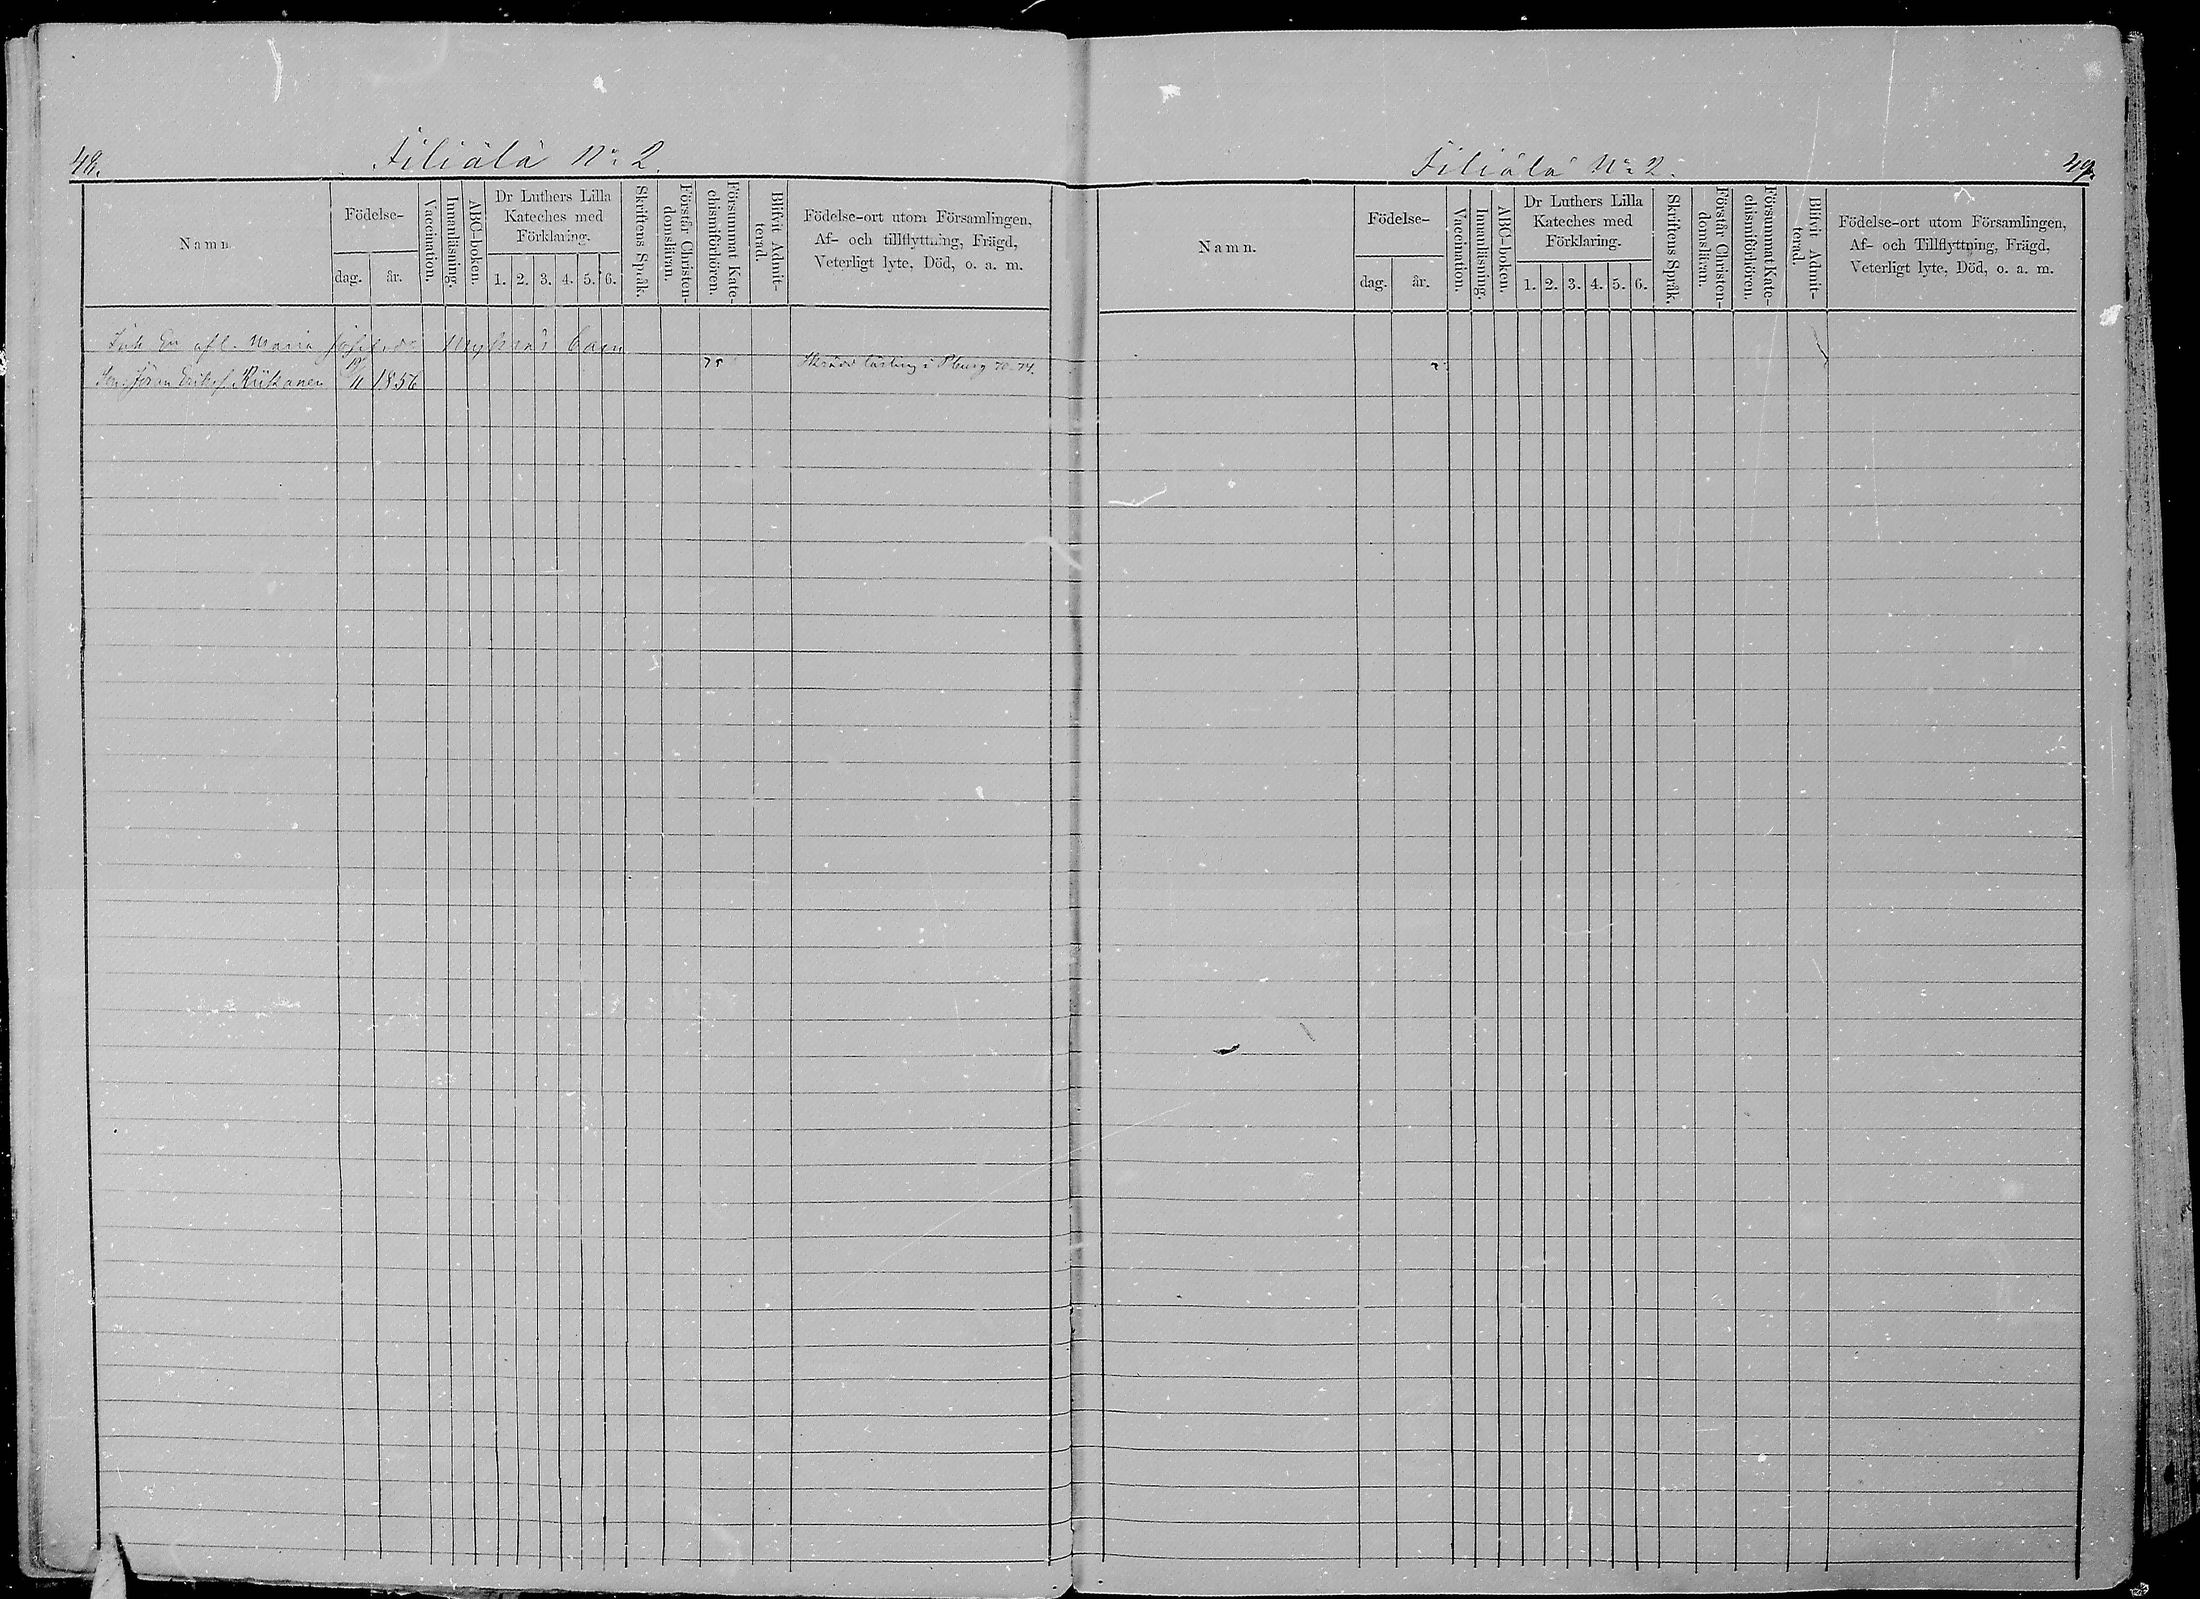 48.
Filiälä No 2.
Namn.
Födelse-
dag.
år.
Vaccination.
Innanläsning.
ABC-boken.
Dr Luthers Lilla
Kateches med
Förklaring.
1. 2. 3. 4. 5. 6.
Skriftens Språk.
Förstår Christen-
domsläran.
Försummat Kate-
chismiförhören.
Blifvit Admit-
terad.
Födelse-ort utom Församlingen,
Af- och tillflyttning, Frägd,
Veterligt lyte, Död, o. a. m.
Enk afl. Maria barn
75
i Pburg 70-74.
Son Erik Kiikanen 11 1856
49.
Filiälä No 2.
Namn.
Födelse-
dag.
år.
Vaccination.
Innanläsning.
ABC-boken.
Dr Luthers Lilla
Kateches med
Förklaring.
1. 2. 3. 4. 5. 6.
Skriftens Språk.
Förstår Christen-
domsläran.
Försummat Kate-
chismiförhören.
Blifvit Admit-
terad.
Födelse-ort utom Församlingen,
Af- och Tillflyttning, Frägd,
Veterligt lyte, Död, o. a. m.